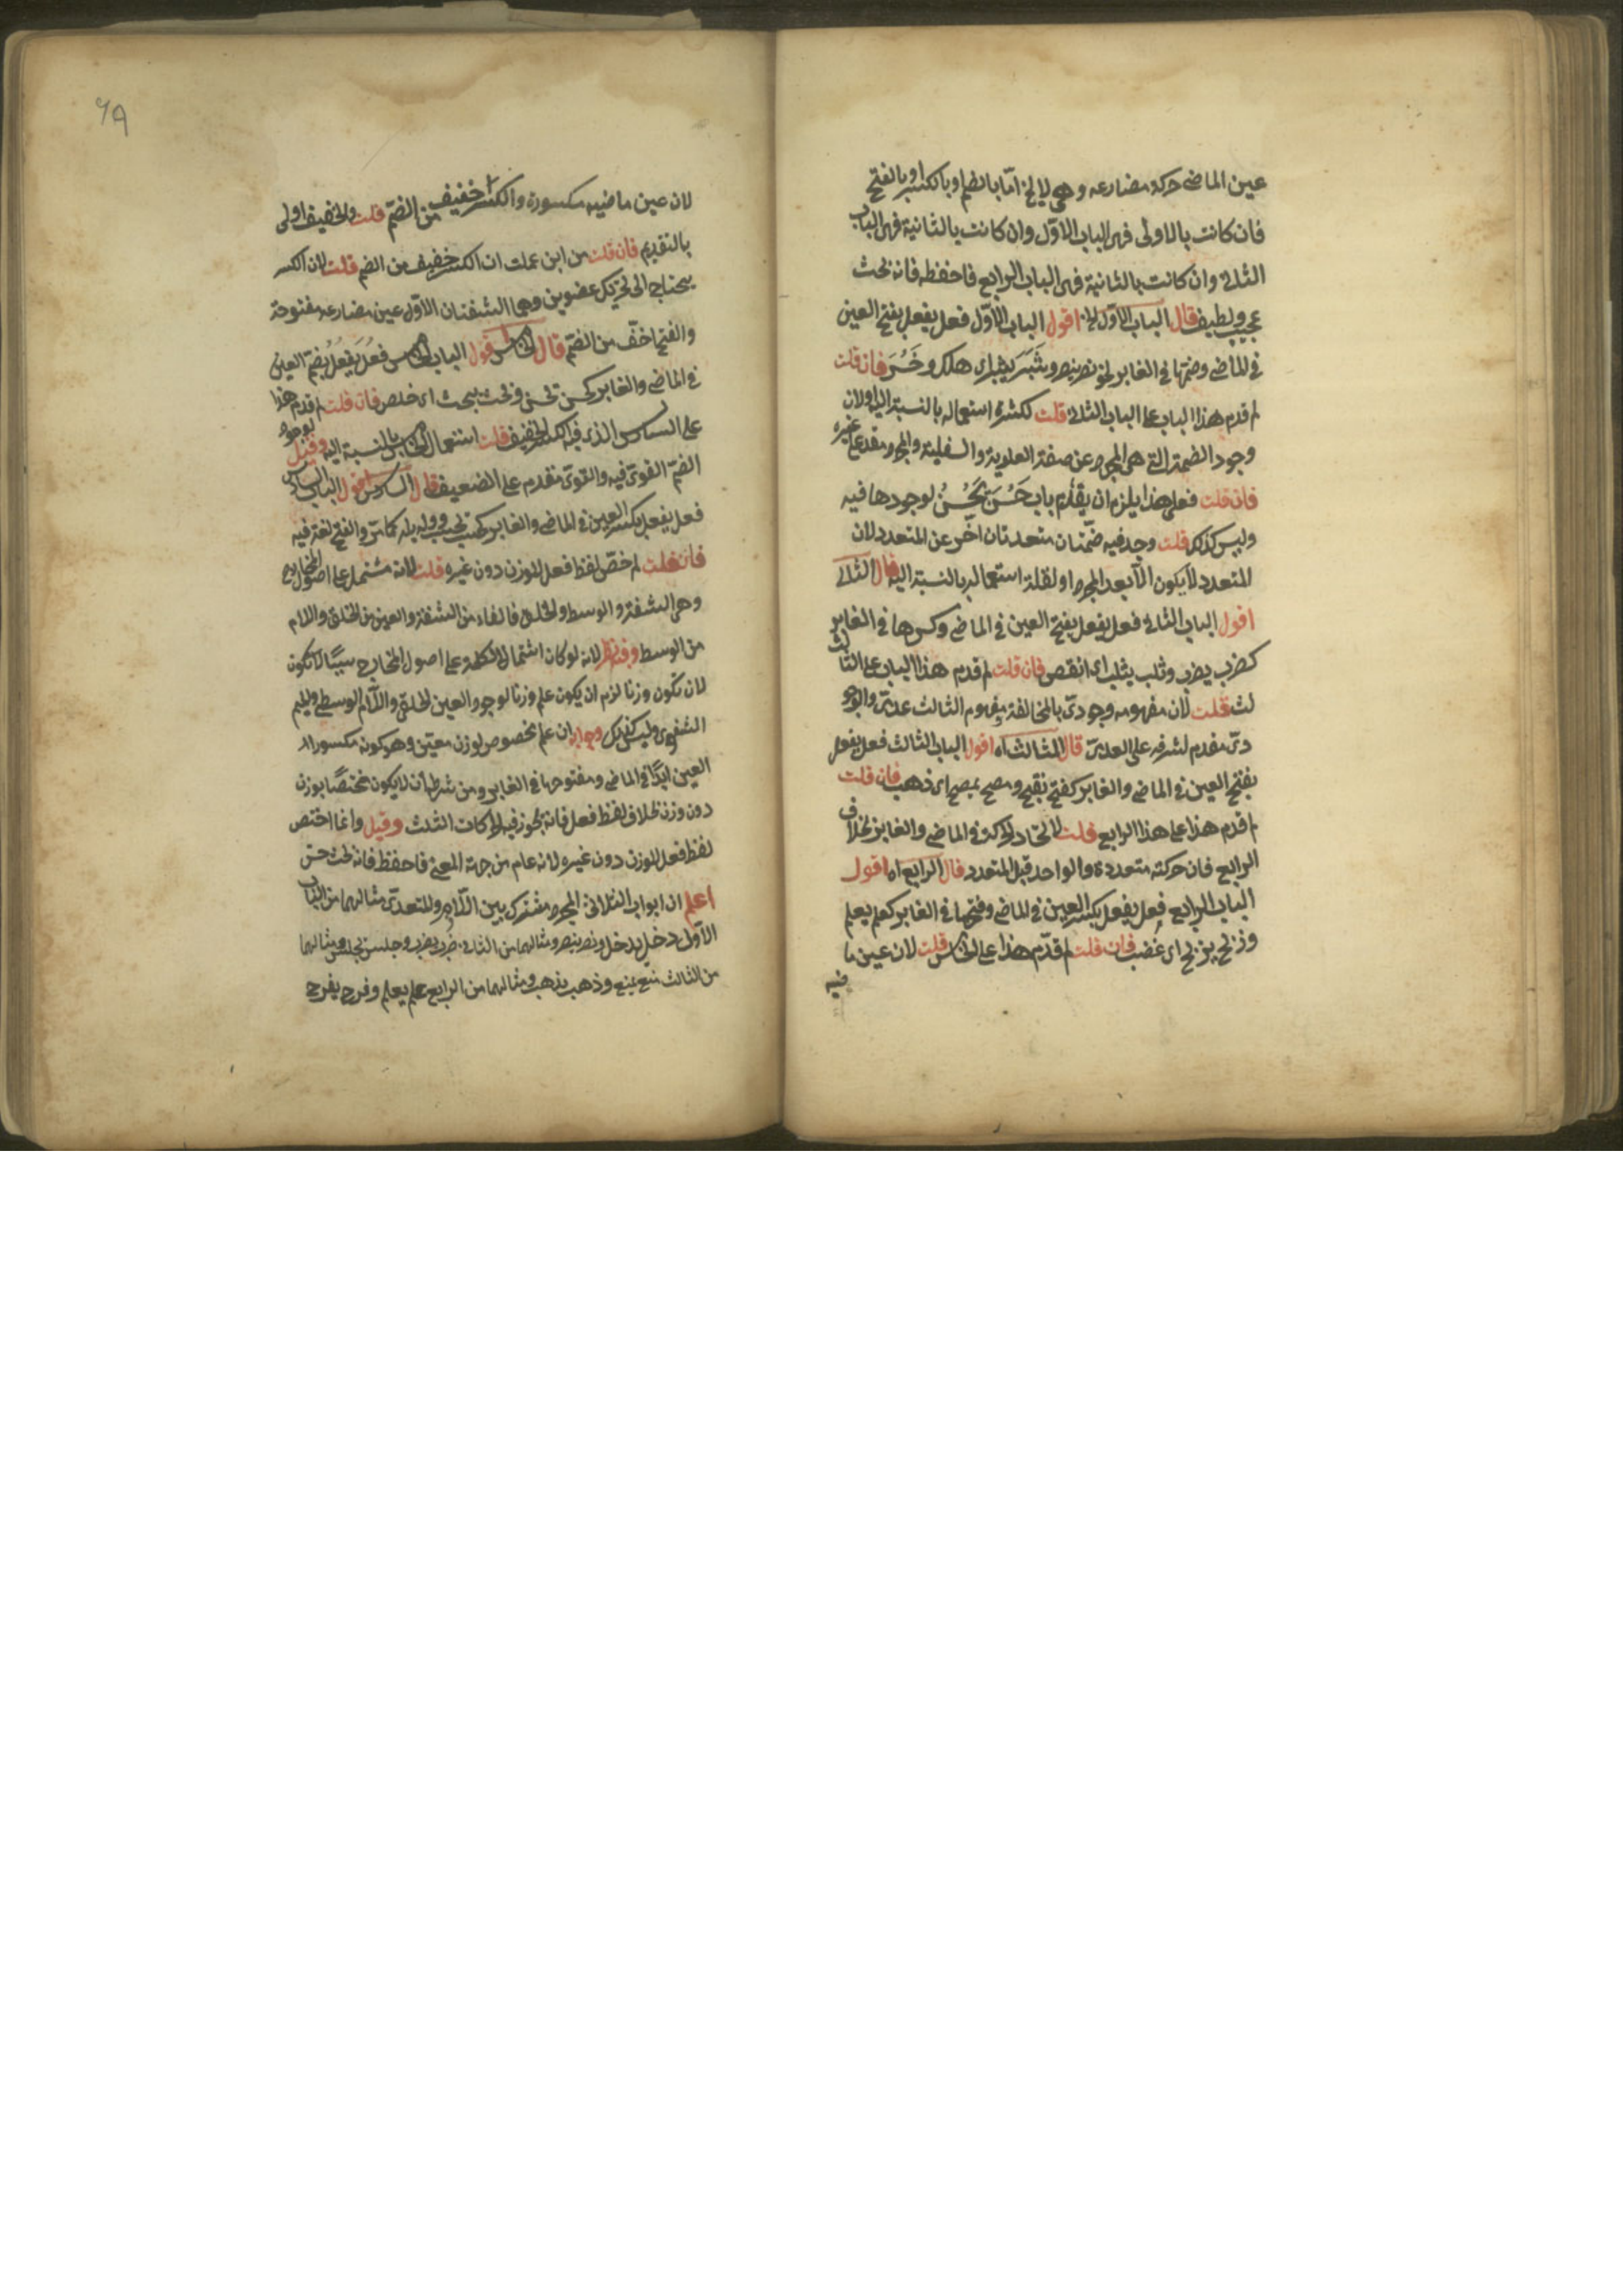 عين الماضى حركة مضارعه وهى لا يخ اما بالضم او بالكسر او بالفتح
فان كانت بالاولى فهى الباب الاول وان كانت بالثانية فهى الباب
الثانى وان كانت بالثانية فهى الباب الرابع فاحفظه فانه بحث
عجيب ولطيف قال الباب الاول الخ اقول الباب الاول فعل يفعل بفتح العين
فى الماضى وضمها فى الغابر نحو نصر ينصر وثَبَرَ يثبر اى هلك وخَسُرَ فان قلت
لم قدم هذا الباب على الباب الثانى قلت لكثرة استعماله بالنسبة اليه اولان
وجود الضمة التى هى المجرد عن صفة العلوية والسفلية والمجرد مقدم على غيره
فان قلت فعلى هذا يلزم ان يقدم باب حَسُنَ يَحْسُنُ لوجودها فيه
وليس كذلك قلت وجد فيه ضمتان متعددتان اخر عن المتعدد لان
المتعدد لا يكون الا بعد المجرد او لقلة استعماله بالنسبة اليه قال الثانى
اقول الباب الثانى فعل يفعل بفتح العين فى الماضى وكسرها فى الغابر
كضرب يضرب وثلب يثلب اى انقص فان قلت لم قدم هذا الباب على الثا
لث قلت لان مفهومه وجودىّ بالمخالفة ومفهوم الثالث عدمىّ والوجو
دىّ مقدم لشرفه على العدمىّ قال الثالث اه اقول الباب الثالث فعل يفعل
بفتح العين فى الماضى والغابر كفتح يفتح ومصح يمصح اى ذهب فان قلت
لم قدم هذا على هذا الرابع قلت لاتحاد الحركة فى الماضى والغابر بخلاف
الرابع فان حركته متعددة والواحد قبل المتعدد قال الرابع اه اقول
الباب الرابع فعل يفعل بكسر العين فى الماضى وفتحها فى الغابر كعلم يعلم
اى غضب فان قلت لم قدّم هذا على الخامس قلت لان عين ما
ضيه
لان عين ماضيه مكسورة والكسر خفيف من الضمّ قلت والخفيف اولى
بالتقديم فان قلت من اين علمت ان الكسر خفيف من الضم قلت لان الكسر
يحتاج الى تحريك عضوين وهما الشفتان الاول عين مضارعه مفتوحة
والفتح اخفّ من الضمّ قال الخامس اقول الباب الخامس فعُل يَفعُلُ بضم العين
فى الماضى والغابر كحسن يحسن وبحث يبحث اى خلص فان قلت لم قدم هذا
على السادس الذى فيه الكسر الخفيف قلت استعمال الخامس بالنسبة اليه وقيل لوجود
الضمّ القوىّ فيه والقوىّ مقدم على الضعيف قال السادس اقول الباب السادس
فعل يفعل بكسر العين فى الماضى والغابر كحسب يحسب ووله يله كما مرّ والفتح لغة فيه
فان قلت لم خصّ لفظ فعل للوزن دون غيره قلت لانه مشتمل على اصول المخارج
وهى الشفة والوسط والحلق فالفاء من الشفة والعين من الحلق واللام
من الوسط وفيه نظر لانه لو كان اشتمال الكلمة على اصول المخارج سببًا
لان تكون وزنا لزم ان يكون علم وزنا لوجود العين الحلقىّ واللام الوسطى والميم
الشفوى وليس كذلك وجوابه ان علم مخصوص لوزن معيّن وهو كونه مكسور
العين ابدًا فى الماضى ومفتوحها فى الغابر ومن شرطه ان لا يكون مختصًا بوزن
دون وزن بخلاف لفظ فعل فانه يجوز فيه الحركات الثلث وقيل وانما اختص
لفظ فعل للوزن دون غيره لانه عام من جهة المعنى فاحفظ فانه بحث حسن
اعلم ان ابواب الثلاثىّ المجرد مشترك بين اللازم والمتعدىّ مثالهما من الباب
الاول دخل يدخل ونصر ينصر ومثالهما من الثانى ضرب يضرب وجلس يجلس ومثالهما
من الثالث منع يمنع وذهب يذهب ومثالهما من الرابع علم يعلم وفرح يفرح